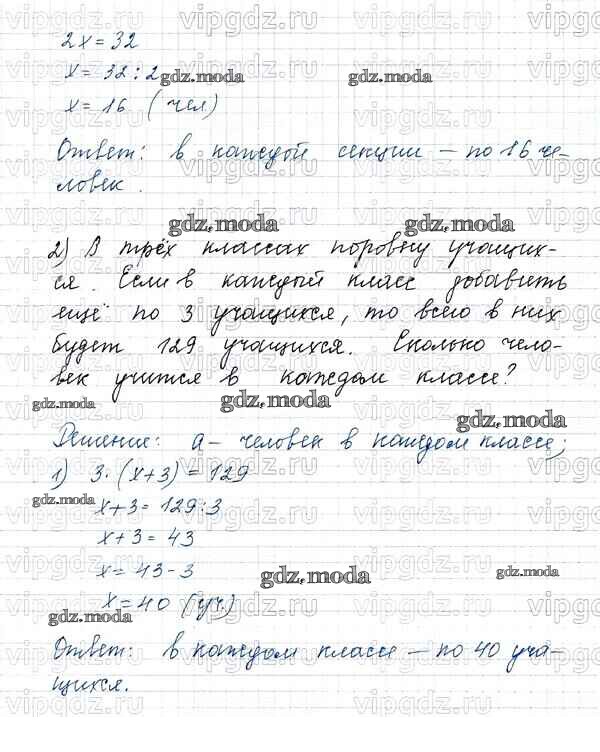 2x = 32
x = 32 : 2
x = 16 (чел)
Ответ: в каждой секции – по 16 че-
ловек.
2) В трёх классах поровну учащих-
ся. Если в каждый класс добавить
ещё по 3 учащихся, то всего в них
будет 129 учащихся. Сколько чело-
век учится в каждом классе?
Решение: а – человек в каждом классе;
1) 3 · (x+3) = 129
x+3 = 129:3
x+3 = 43
x = 43-3
x = 40 (уч)
Ответ: в каждом классе – по 40 уча-
щихся.
gdz.moda
vipgdz.ru